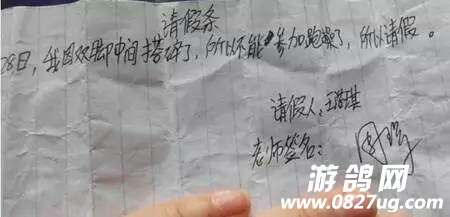 请假条
28日，我因双脚中间搭碎了，所以不能参加跑操了，所以请假。
请假人：王
老师签名：
游鸽网
www.0827ug.com